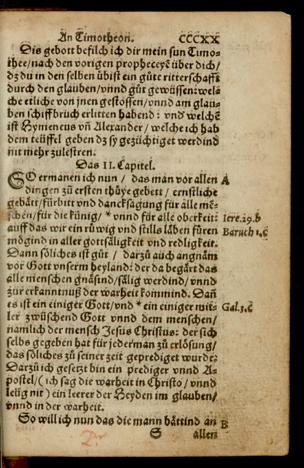 An Timotheon. CCCXX
Dis gebott befilch ich dir mein sun Timo-
thee/nach den vorigen propheceyē über dich/
dz du in den selben übist ein gůte ritterschafft
durch den glauben/vnnd gůt gewüssen: wel-
che etliche von jnen gestossen/vnnd am glau-
ben schiffbruch erlitten habend: vnd welchē
ist Hymeneus vñ Alexander/welche ich hab
dem teüffel geben dz sy gezüchtiget werdind
nit mehr zulestren.
Das II. Capitel.
SO ermanen ich nun / das man vor allen A
dingen zů ersten thüye gebett / ernstliche
gebätt/fürbitt vnd dancksagung für alle mē-
schen/für die künig/ * vnnd für alle oberkeit: Iere.29.b
auff das wir ein rüwig vnd stills läben füren Baruch 1.c
mögind in aller gottsäligkeit vnd redligkeit.
Dann söliches ist gůt / darzů auch angnäm
vor Gott vnserm heyland: der da begärt das
alle menschen gnäsind/sälig werdind/vnnd
zur erkanntnuß der warheit kommind. Dañ
es ist ein einiger Gott/vnd * ein einiger mit- Gal.3.c
ler zwüschend Gott vnnd dem menschen/
namlich der mensch Jesus Christus: der sich
selbs gegeben hat für jederman zů erlösung/
das söliches zů seiner zeit geprediget wurde:
Darzů ich gesetzt bin ein prediger vnnd A-
postel/(ich sag die warheit in Christo / vnnd
leüg nit) ein leerer der Heyden im glauben/
vnnd in der warheit.
So will ich nun das die mann bättind an B
S allen